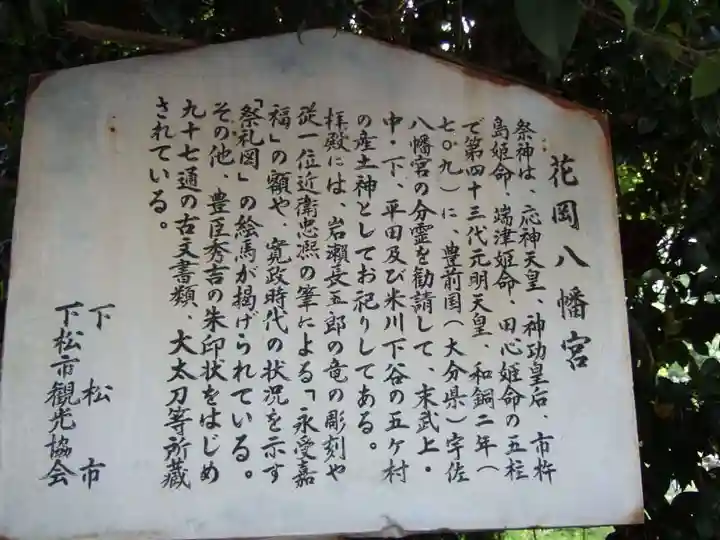 花岡八幡宮
祭神は、応神天皇、神功皇后、市杵
島姫命、端津姫命、田心姫命の五柱
で第四十三代元明天皇　和銅二年（
七〇九）に、豊前国（大分県）宇佐
八幡宮の分霊を勧請して、末武上・
中・下、平田及び米川下谷の五ヶ村
の産土神としてお祀りしてある。
拝殿には、岩瀬長五郎の竜の彫刻や
従一位近衛忠凞の筆による「永受嘉
福」の額や、寛政時代の状況を示す
「祭礼図」の絵馬が掲げられている。
その他、豊臣秀吉の朱印状をはじめ
九十七通の古文書類、大太刀等所蔵
されている。
下松市
下松市観光協会